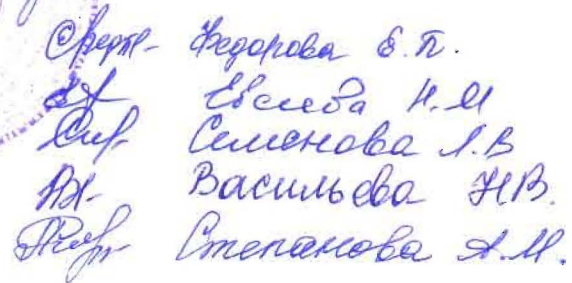 Федорова Е.П.
Евсеева Н.М
Семенова Л.В
Васильева Н.В.
Степанова А.М.